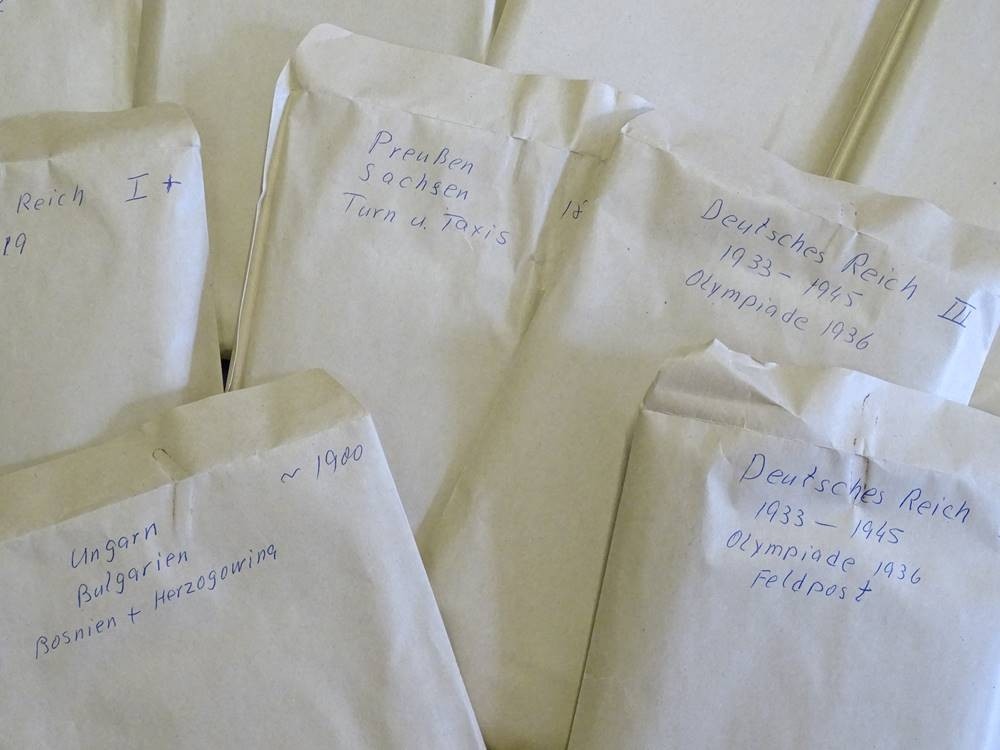 Reich I +
19
Preußen
Sachsen
Turn u. Taxis
18
Deutsches Reich III
1933 - 1945
Olympiade 1936
~ 1900
Ungarn
Bulgarien
Bosnien + Herzogowina
Deutsches Reich
1933 - 1945
Olympiade 1936
Feldpost